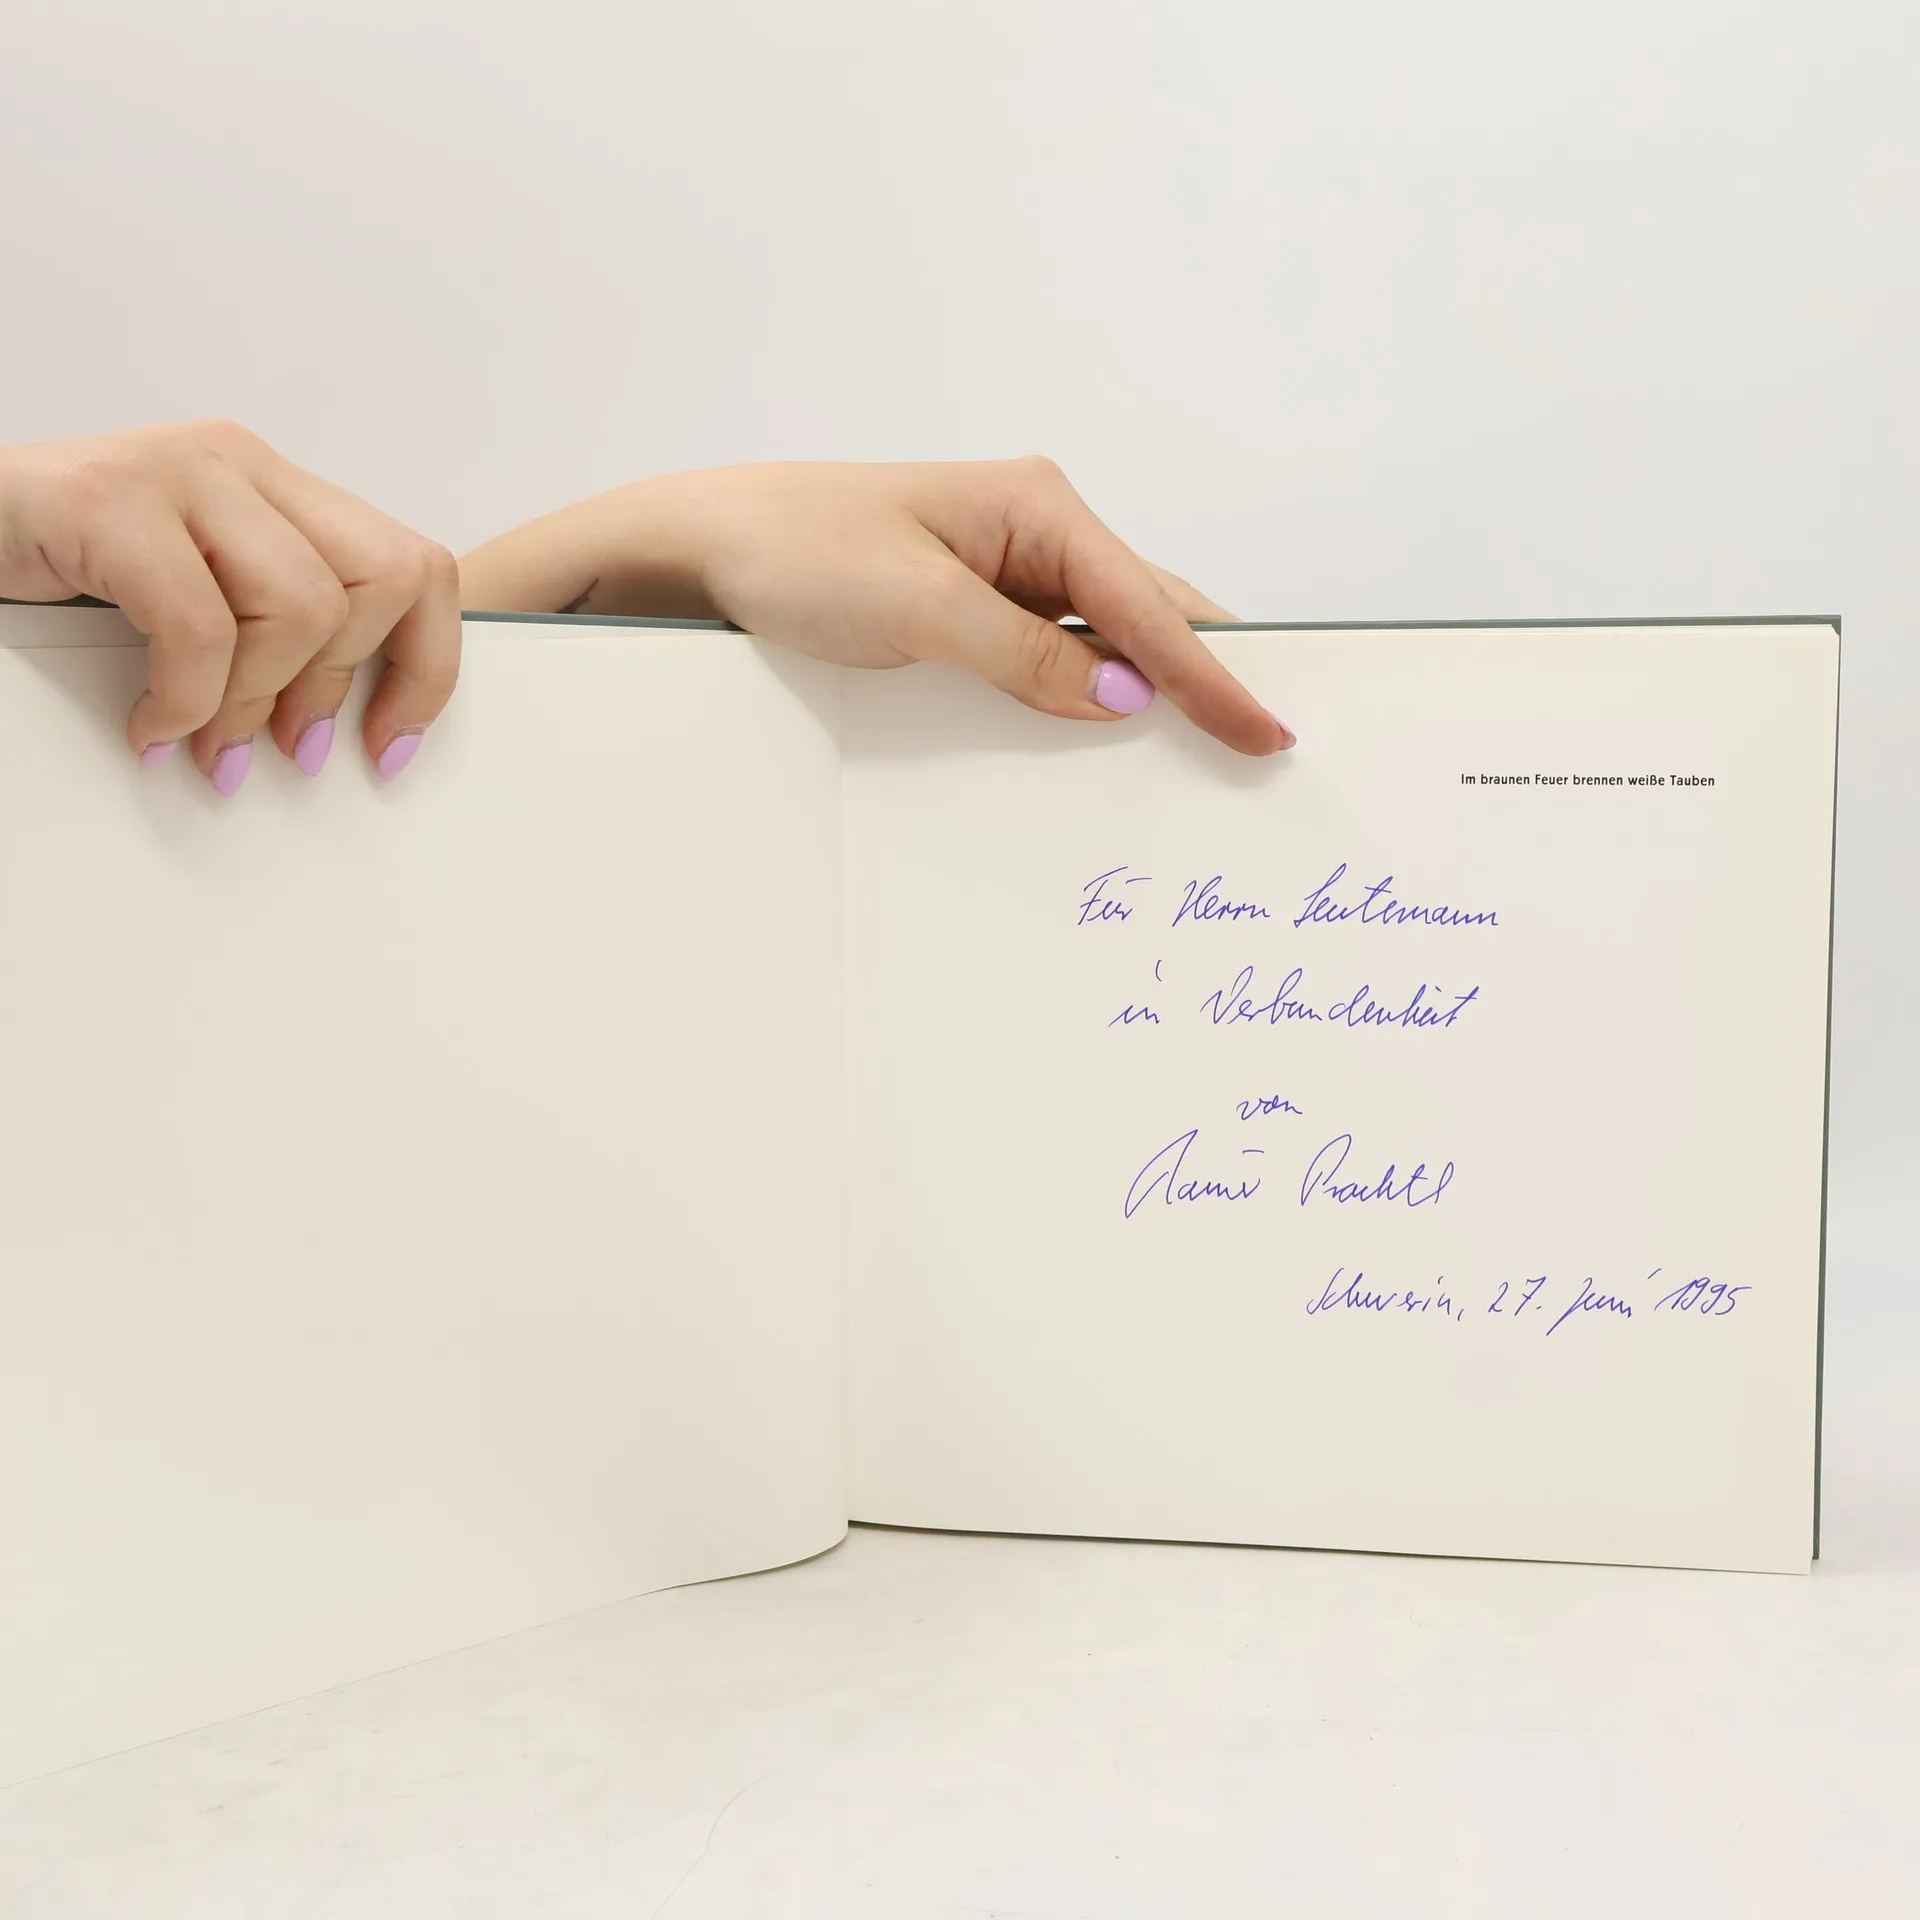 Im braunen Feuer brennen weiße Tauben
Für Herrn Leutemann
in Verbundenheit
von
Rainer Prachtl
Schwerin, 27. Juni 1995